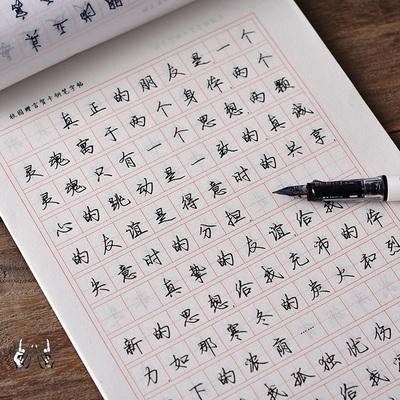 校园赠言贺卡钢笔字帖
真正的朋友是一个
灵魂寓于两个身体,两个
灵魂只有一个思想,两颗
心的跳动是一致的,真诚
的友谊是得意时的共享,
失意时的分担。
真挚的友谊给我
新的思想,给我充沛的体
力如那寒冬的炭火和烈
下的浓荫……
我孤独忧伤